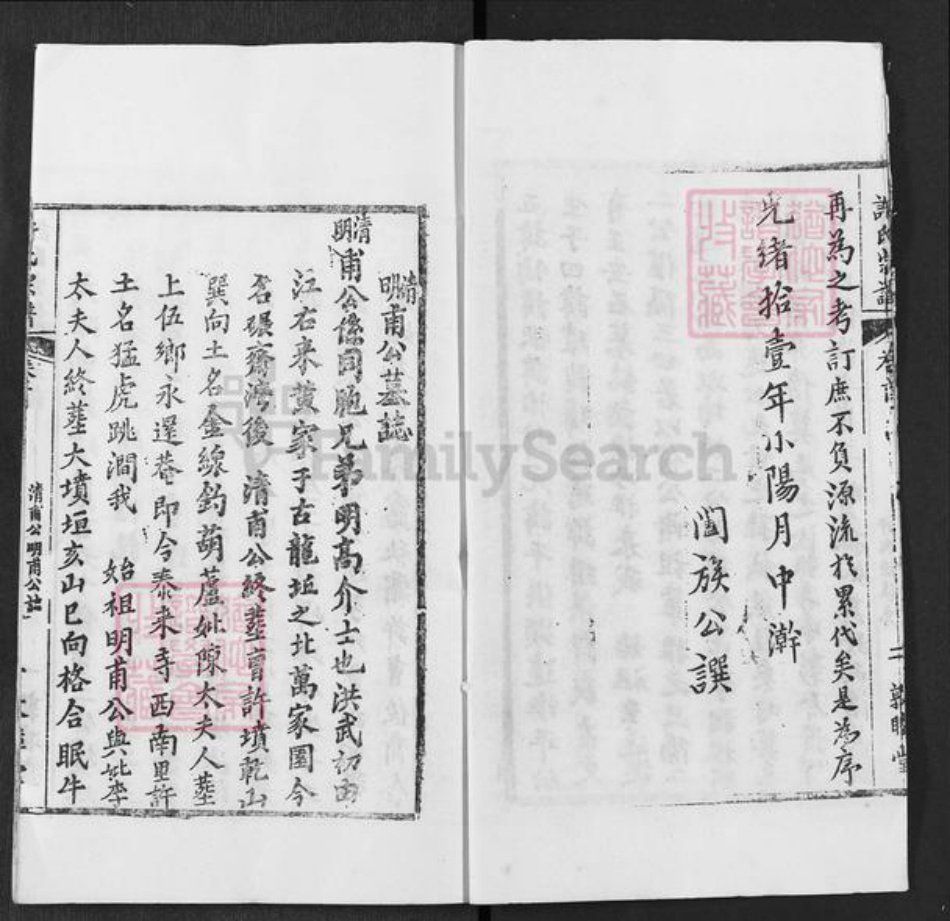 再為之考訂庶不負源流於累代矣是為序
光緒拾壹年小陽月中澣
闔族公譔
清明甫公墓誌
清明甫公係同胞兄弟明高介士也洪武初由
江右來黃家于古龍坵之北萬家園今
名張齋灣後 清甫公終塟曹許墳乾山
巽向土名金線釣葫蘆妣陳太夫人塟
上伍鄉永還菴即今泰來寺西南里許
土名猛虎跳澗我 始祖明甫公與妣李
太夫人終塟大墳垣亥山巳向格合眠牛
清甫公明甫公誌
FamilySearch